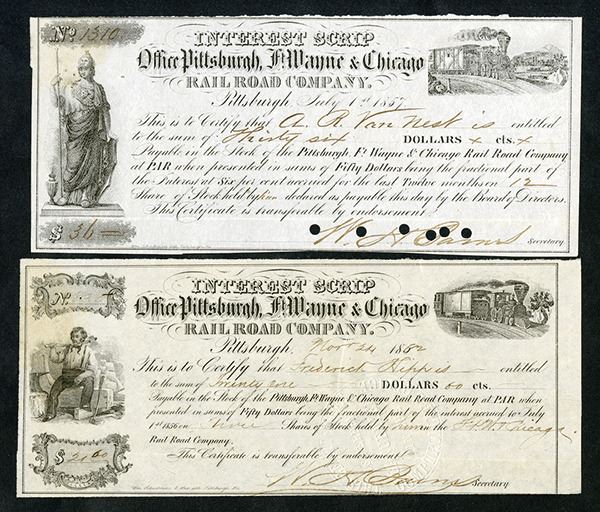 No 1310
INTEREST SCRIP
Office Pittsburgh, Ft. Wayne & Chicago
RAIL ROAD COMPANY.
Pittsburgh, July 1st 1857
This is to Certify that A. R. Van Nest is entitled
to the sum of Thirty six DOLLARS x cts. x
Payable in the Stock of the Pittsburgh, Ft. Wayne & Chicago Rail Road Company
at PAR when presented in sums of Fifty Dollars being the fractional part of
the Interest at Six per cent accrued for the last Twelve months on 12
Share of Stock held by him declared as payable this day by the Board of Directors.
This Certificate is transferable by endorsement.
$ 36 —
Secretary
INTEREST SCRIP
No
Office Pittsburgh, Ft. Wayne & Chicago
RAIL ROAD COMPANY.
Pittsburgh, Nov 24 1862
This is to Certify that Frederick Hipp is entitled
to the sum of Twenty one DOLLARS 00 cts.
Payable in the Stock of the Pittsburgh, Ft. Wayne & Chicago Rail Road Company at PAR when
presented in sums of Fifty Dollars being the fractional part of the interest accrued to July
1st 1856 on Shares of Stock held by him in the Chicago
Rail Road Company.
This Certificate is transferable by endorsement
$ 21.00
Secretary